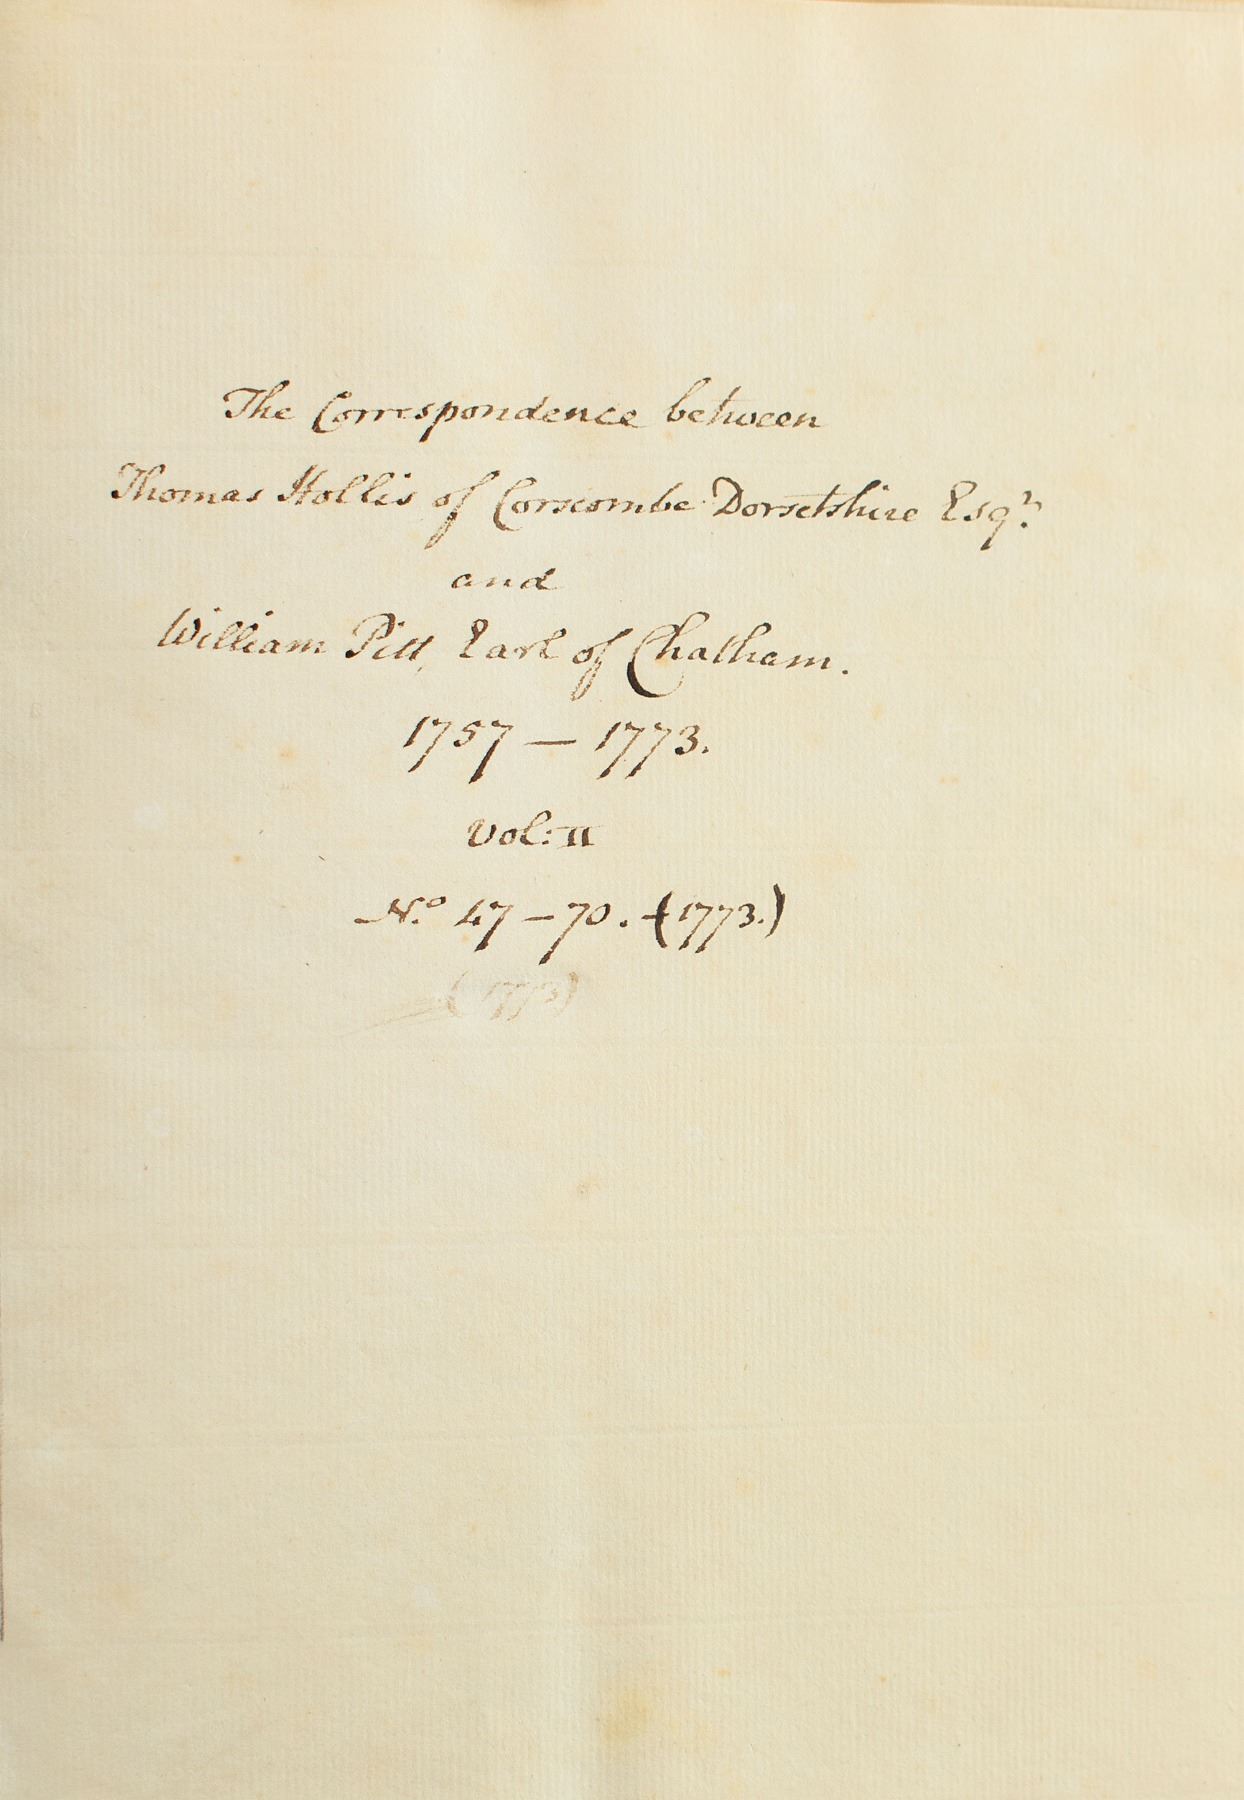 The Correspondence between
Thomas Hollis of Corscombe Dorsetshire Esqr.
and
William Pitt, Earl of Chatham.
1757 — 1773.
Vol: II
No. 47 – 70. – (1773.)
(1773)